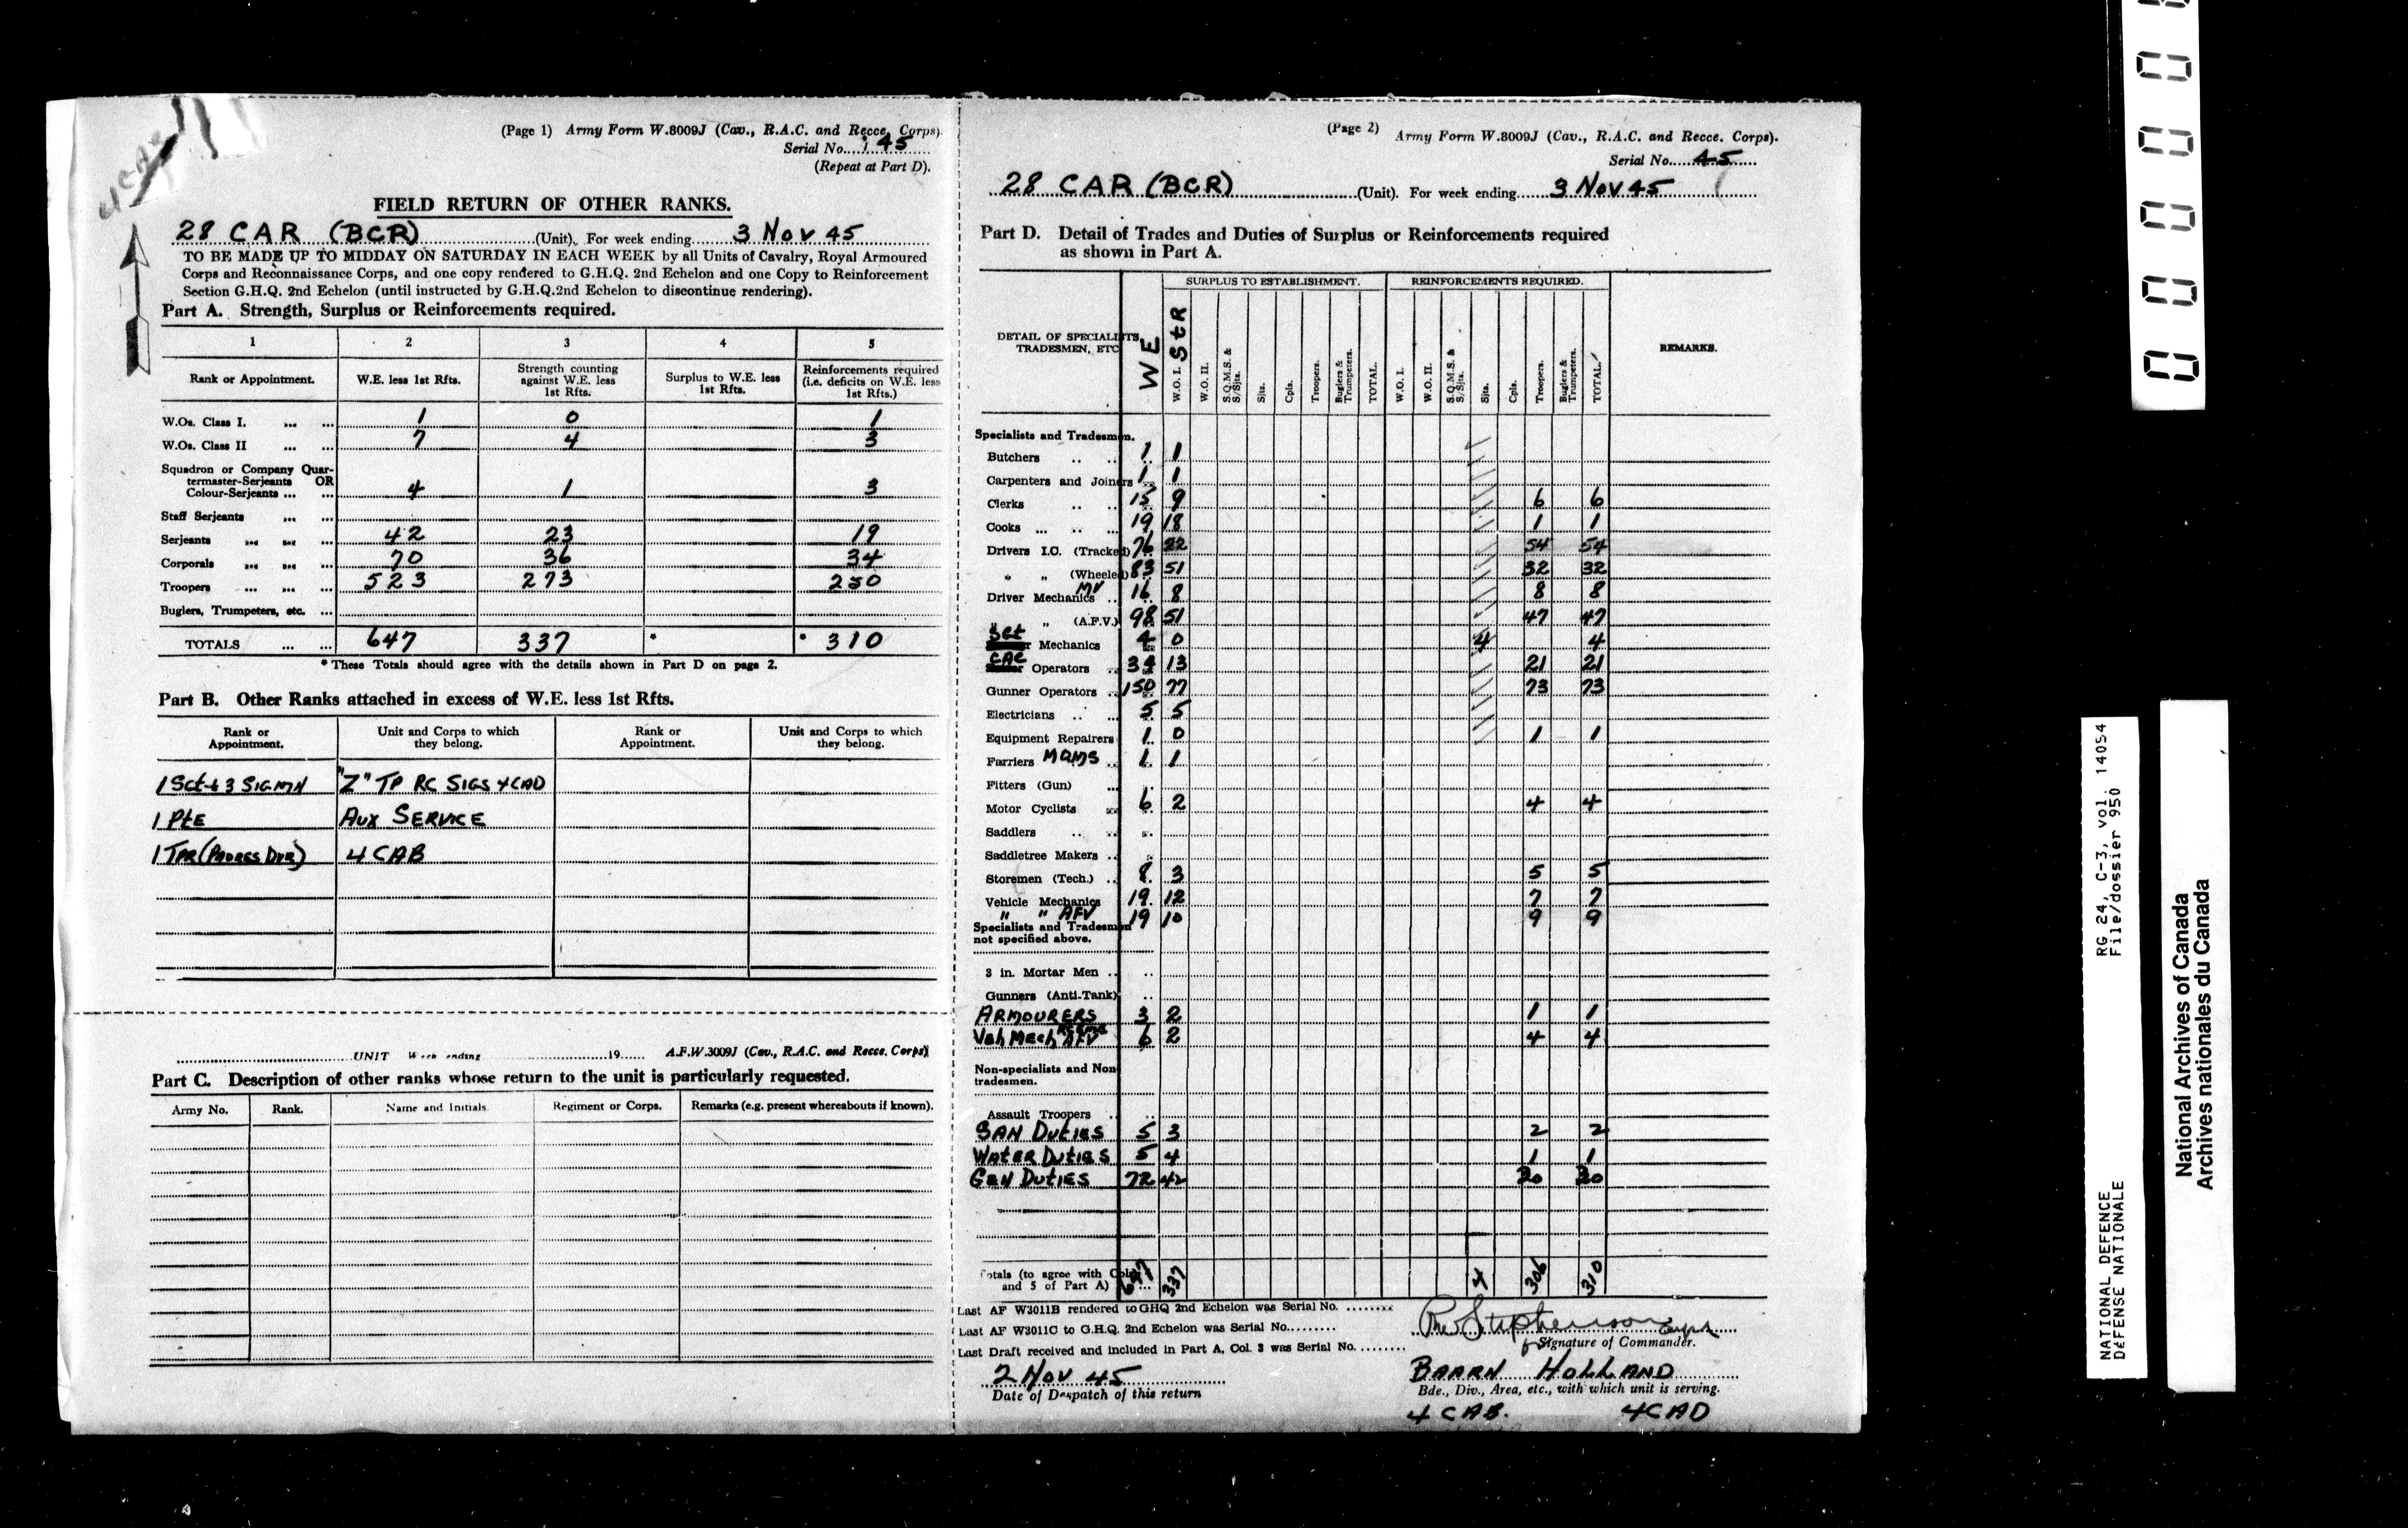 (Page 1) Army Form W.3009J (Cav., R.A.C. and Recce. Corps)
Serial No. 45
(Repeat at Part D).
FIELD RETURN OF OTHER RANKS.
28 CAR (BCR) (Unit). For week ending 3 Nov 45
TO BE MADE UP TO MIDDAY ON SATURDAY IN EACH WEEK by all Units of Cavalry, Royal Armoured
Corps and Reconnaissance Corps, and one copy rendered to G.H.Q. 2nd Echelon and one Copy to Reinforcement
Section G.H.Q. 2nd Echelon (until instructed by G.H.Q.2nd Echelon to discontinue rendering).
Part A. Strength, Surplus or Reinforcements required.
1 2 3 4 5
Rank or Appointment. W.E. less 1st Rfts. Strength counting against W.E. less 1st Rfts. Surplus to W.E. less 1st Rfts. Reinforcements required (i.e. deficits on W.E. less 1st Rfts.)
W.Os. Class I. ... ... 1 0 1
W.Os. Class II ... ... 7 4 3
Squadron or Company Quar-
termaster-Serjeants OR
Colour-Serjeants ... ... 4 1 3
Staff Serjeants ... ...
Serjeants ... ... ... 42 23 19
Corporals ... ... ... 70 36 34
Troopers ... ... ... 523 273 250
Buglers, Trumpeters, etc. ...
TOTALS ... ... 647 337 * * 310
* These Totals should agree with the details shown in Part D on page 2.
Part B. Other Ranks attached in excess of W.E. less 1st Rfts.
Rank or Appointment. Unit and Corps to which they belong. Rank or Appointment. Unit and Corps to which they belong.
1 Sgt + 3 SIGMN "Z" TP RC SIGS 4CAD
1 PtE AUX SERVICE
1 TPR (PADRES DVR) 4 CAB
UNIT Week ending 19...... A.F.W.3009J (Cav., R.A.C. and Recce. Corps)
Part C. Description of other ranks whose return to the unit is particularly requested.
Army No. Rank. Name and Initials. Regiment or Corps. Remarks (e.g. present whereabouts if known).
(Page 2) Army Form W.3009J (Cav., R.A.C. and Recce. Corps).
Serial No. 45
28 CAR (BCR) (Unit). For week ending 3 Nov 45
Part D. Detail of Trades and Duties of Surplus or Reinforcements required
as shown in Part A.
SURPLUS TO ESTABLISHMENT. REINFORCEMENTS REQUIRED.
DETAIL OF SPECIALISTS, TRADESMEN, ETC. WE StR W.O. I. W.O. II. S.Q.M.S. & S/Sjts. Sjts. Cpls. Troopers. Buglers & Trumpeters. TOTAL. W.O. I. W.O. II. S.Q.M.S. & S/Sjts. Sjts. Cpls. Troopers. Buglers & Trumpeters. TOTAL. REMARKS.
Specialists and Tradesmen.
Butchers .. .. 1 1
Carpenters and Joiners 1 1
Clerks .. .. 15 9 6 6
Cooks ... .. .. 19 18 1 1
Drivers I.C. (Tracked) 76 22 54 54
" " (Wheeled) 83 51 32 32
Driver Mechanics MV .. 16 8 8 8
" " (A.F.V.) 98 51 47 47
Sgt Mechanics 4 0 4 4
CAC Operators .. 34 13 21 21
Gunner Operators .. 150 77 73 73
Electricians .. ... 5 5
Equipment Repairers 1 0 1 1
Farriers MQMS .. 1 1
Fitters (Gun) ...
Motor Cyclists .. 6 2 4 4
Saddlers .. ..
Saddletree Makers ..
Storemen (Tech.) .. 8 3 5 5
Vehicle Mechanics 19 12 7 7
" " AFV 19 10 9 9
Specialists and Tradesmen
not specified above.
3 in. Mortar Men .. ..
Gunners (Anti-Tank) ..
ARMOURERS 3 2 1 1
Veh Mech AFV 6 2 4 4
Non-specialists and Non-
tradesmen.
Assault Troopers .. ..
SAN DUTIES 5 3 2 2
WATER DUTIES 5 4 1 1
GEN DUTIES 72 42 30 30
Totals (to agree with Cols.
and 5 of Part A) 647 337 4 306 310
Last AF W3011B rendered to GHQ 2nd Echelon was Serial No. ........
Last AF W3011C to G.H.Q. 2nd Echelon was Serial No.........
Last Draft received and included in Part A, Col. 3 was Serial No. ........
Stephenson
Signature of Commander.
2 Nov 45
Date of Despatch of this return
BAARN HOLLAND
Bde., Div., Area, etc., with which unit is serving.
4 CAB. 4CAD
NATIONAL DEFENCE RG 24, C-3, vol. 14054
DÉFENSE NATIONALE File/dossier 950
National Archives of Canada
Archives nationales du Canada